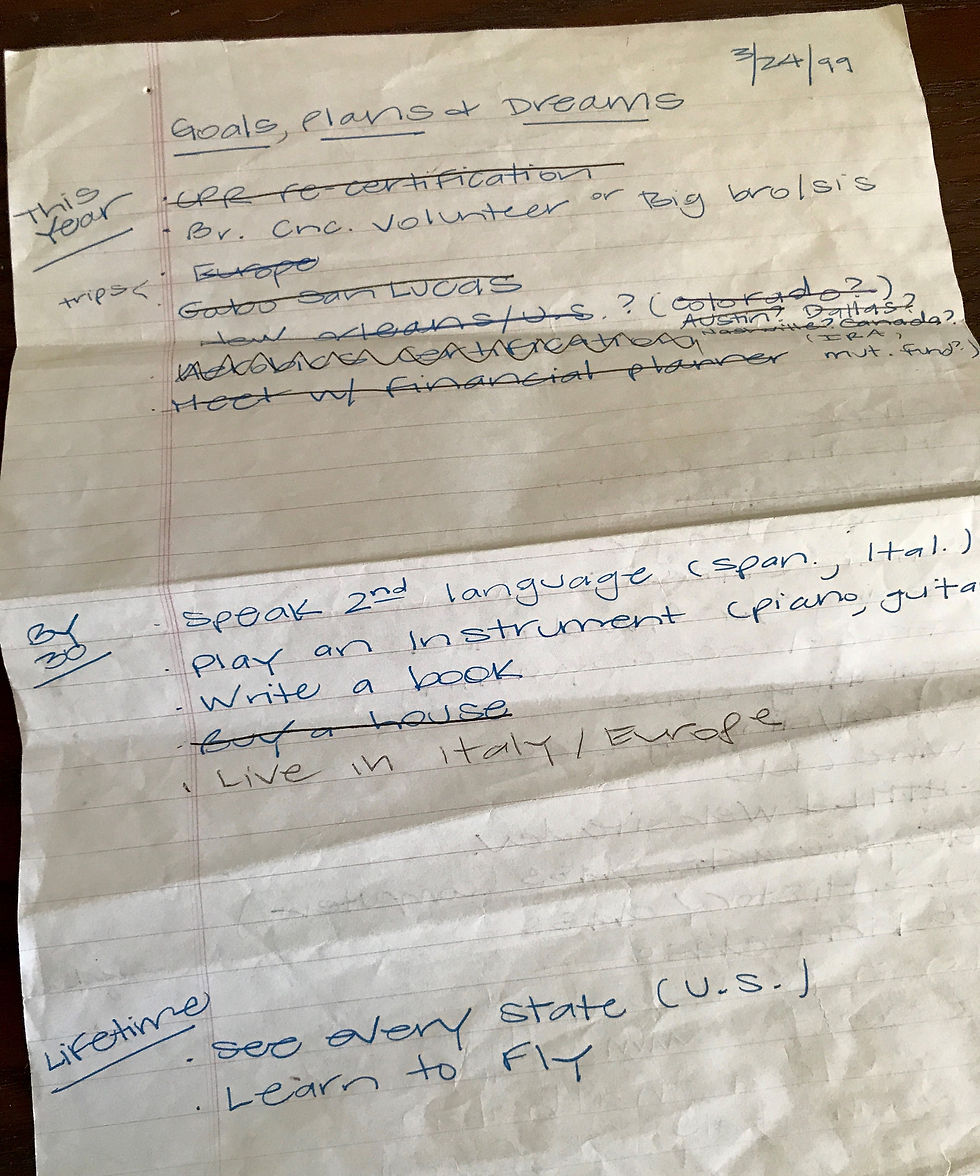 3/24/99
Goals, Plans & Dreams
This Year
CPR re-certification
Br. Cnc. Volunteer or Big bro/sis
trips
Europe
Cabo San Lucas
New Orleans/U.S. ? (Colorado?)
Austin? Dallas?
Canada?
certification
Meet w/ financial planner (IRA, mut. fund?)
By 30
Speak 2nd language (Span., Ital.)
Play an instrument (piano, guita
Write a book
Buy a house
Live in Italy / Europe
Lifetime
See every state (U.S.)
Learn to Fly